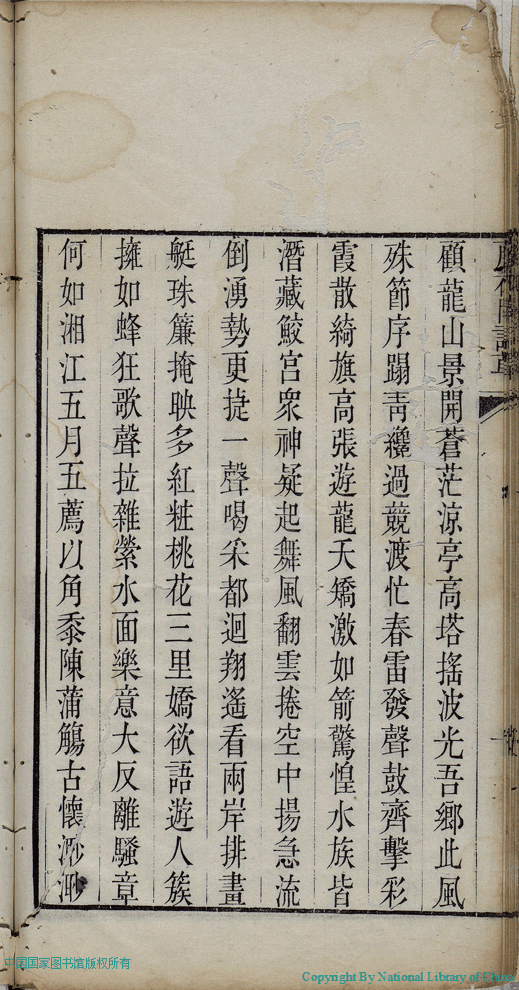 顧龍山景開蒼茫涼亭高塔搖波光吾鄉此風
殊節序蹋靑纔過競渡忙春雷發聲鼓齊擊彩
霞散綺旗高張遊龍夭矯激如箭驚惶水族皆
潛藏鮫宮衆神疑起舞風翻雲捲空中揚急流
倒湧勢更㨗一聲喝采都迴翔遙看兩岸排畫
艇珠簾掩映多紅粧桃花三里嬌欲語遊人簇
擁如蜂狂歌聲拉雜縈水面樂意大反離騷章
何如湘江五月五薦以角黍陳蒲觴古懷渺渺
中国国家图书馆版权所有
Copyright By National Library of China